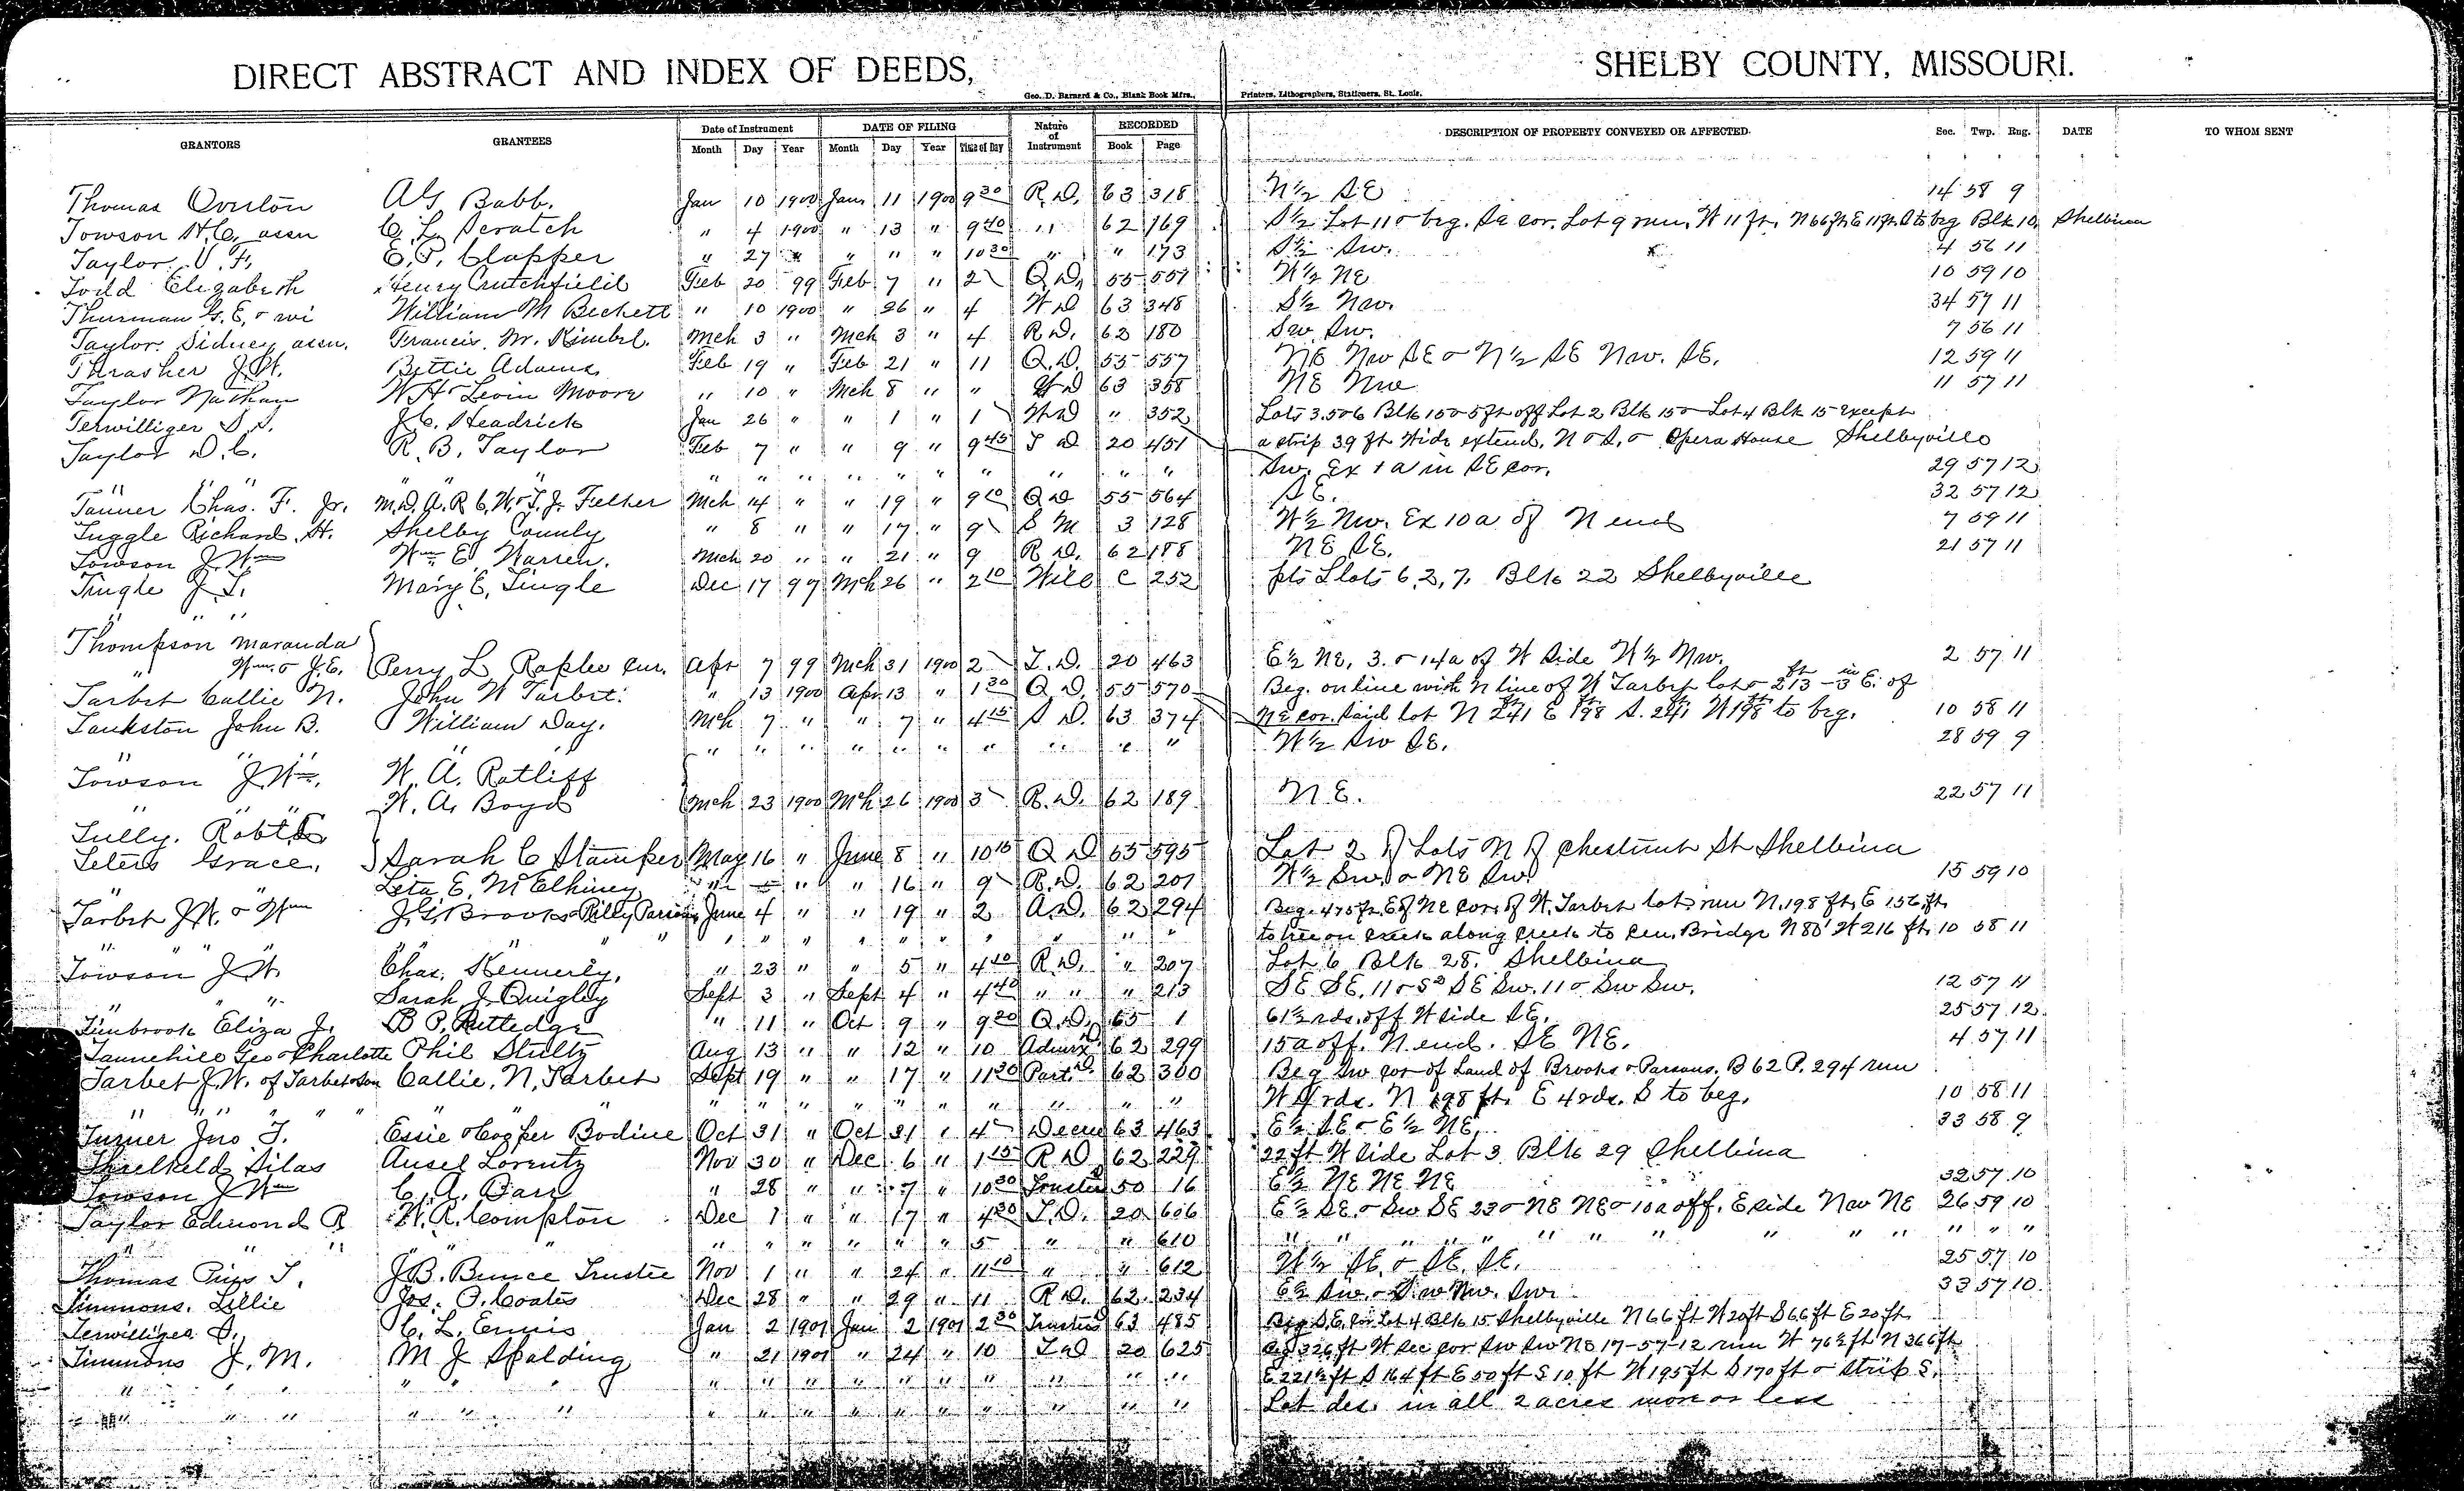 DIRECT ABSTRACT AND INDEX OF DEEDS, SHELBY COUNTY, MISSOURI.
Geo. D. Barnard & Co., Blank Book Mfrs., Printers, Lithographers, Stationers, St. Louis.
GRANTORS GRANTEES Date of Instrument DATE OF FILING Nature of Instrument RECORDED DESCRIPTION OF PROPERTY CONVEYED OR AFFECTED Sec. Twp. Rng. DATE TO WHOM SENT
Month Day Year Month Day Year Time of Day Book Page
Thomas A G Babb. Jan 10 1900 Jan 11 1900 9 30 R. D. 63 318 N ½ SE 14 58 9
Towson H. C. assn C. L. Scratch " 4 1900 " 13 " 9 40 " " 62 169 S ½ Lot 11 & beg. Se cor. Lot 9 run. W 11 ft. N 66 ft E 11 ft S to beg Blk 10, Shelbina
Taylor J. F. E. P. Clapper " 27 " " " " 10 30 " " 173 S ½ Sw. 4 56 11
Todd Elizabeth Henry Crutchfield Feb 20 99 Feb 7 " 2 Q. D. 55 551 W ½ NE 10 59 10
Thurman G. E. & wi William M Beckett " 10 1900 " 26 " 4 W D 63 348 S ½ Nw. 34 57 11
Taylor Sidney assn. Francis M. Kimbel. Mch 3 " Mch 3 " 4 R. D. 62 180 Sw. Sw. 7 56 11
Thrasher J. W. Bettie Adams Feb 19 " Feb 21 " 11 Q. D. 55 557 NE Nw SE & N ½ SE Nw. SE. 12 59 11
Taylor Nathan W H & Levin Moore " 10 " Mch 8 " " W D 63 358 NE Nw 11 57 11
Terwilliger S. S. J. C. Headrick Jan 26 " " 1 " 1 W D " 352 Lots 3.5 & 6 Blk 15 & 5 ft off Lot 2 Blk 15 & Lot 4 Blk 15 except
Taylor D. C. R. B. Taylor Feb 7 " " 9 " 9 45 T D 20 451 a strip 39 ft Wide extend. N & S. & Opera House Shelbyville
" " " " " " " " " " " " Sw. Ex 1 a in SE cor. 29 57 12
Tanner Chas. F. Jr. M. D. A. R C. W. & T. J. Feltner Mch 14 " " 19 " 9 10 Q D 55 564 SE. 32 57 12
Tuggle Richard H. Shelby County " 8 " " 17 " 9 S M 3 128 W ½ Nw. Ex 10 a of N end 7 59 11
Towson J. Wm Wm E. Warren. Mch 20 " " 21 " 9 R D. 62 188 NE SE. 21 57 11
Tingle J. T. Mary E. Tingle Dec 17 99 Mch 26 " 2 10 Will C 252 pts Lots 6, 2, 7. Blk 22 Shelbyville
" " "
Thompson Maranda
" Wm. & J. E. Perry L Raplee cur. Apr 7 99 Mch 31 1900 2 T. D. 20 463 E ½ NE, 3. & 14 a of W side W ½ Nw. 2 57 11
Tarbet Callie N. John W Tarbet. " 13 1900 Apr. 13 " 1 30 Q D. 55 570 Beg. on line with N line of W Tarbet lot & 213 ft - 3 in E. of
Tankston John B. William Day. Mch 7 " " 7 " 4 15 S D. 63 374 NE cor. said lot N 241 E 198 S. 241 W 198 to beg. 10 58 11
" " " " " " " " " " " " W ½ Sw SE. 28 59 9
Towson J. Wm. W. A. Ratliff
" " " W. A. Boyd Mch 23 1900 Mch 26 1900 3 R. D. 62 189 N. E. 22 57 11
Tully. Robt
Teters Grace. Sarah C Stamper May 16 " June 8 " 10 15 Q D 55 595 Lot 2 of Lots N of Chestnut St Shelbina
" Leta E. McElhiney " " " 16 " 9 R. D. 62 201 W ½ Sw. & NE Sw. 15 59 10
Tarbet J. W. & Wm J. G. Brooks & Billy Parsons June 4 " " 19 " 2 A D. 62 294 Beg. 475 ft. E of NE Cor. of W. Tarbet lot run N. 198 ft, E 156 ft
" " " " " " " " " " " " " to tree on creek along creek to Cen. Bridge N 80' W 216 ft. 10 58 11
Towson J W. Chas. Kennerly, " 23 " " 5 " 4 40 R. D. " 207 Lot 6 Blk 28. Shelbina
" " " Sarah J Quigley Sept 3 " Sept 4 " 4 40 " " " 213 SE SE. 11 & SE Sw. 11 & Sw Sw. 12 57 11
Timbrook Eliza J. B P. Rutledge " 11 " Oct 9 " 9 20 Q. D. 65 1 61 ½ rds. off W side SE. 25 57 12
Tannehill Geo & Charlotte Phil Stultz Aug 13 " " 12 " 10 62 299 15 a off. N end. SE NE. 4 57 11
Tarbet J. W. of Tarbet & Son Callie. N. Tarbet Sept 19 " " 17 " 11 20 Part. 62 300 Beg Sw cor of Land of Brooks & Parsons. B 62 P. 294 run
" " " " " " " " " " " " W 4 rds. N 198 ft. E 4 rds. S to beg. 10 58 11
Turner Jno T. Essie & Cooper Bodine Oct 31 " Oct 31 " 4 63 463 E ½ SE & E ½ NE. 33 58 9
Threlkeld Silas Ansel Lorentz Nov 30 " Dec 6 " 1 15 R D. 62 229 22 ft W side Lot 3 Blk 29 Shelbina
Towson J Wm C. A. Parr " 28 " " 7 " 10 30 Trustee 50 16 E ½ NE NE NE 32 57 10
Taylor Edmond R W. R. Compton Dec 1 " " 17 " 4 30 T. D. 20 606 E ½ SE. & Sw SE 23 & NE NE & 10 a off. E side Nw NE 26 59 10
" " " " " " " " " 5 " " 610 " " " " " " " " " "
Thomas T. J. B. Bunce Trustee Nov 1 " " 24 " 11 10 " " 612 W ½ SE. & SE. SE. 25 57 10
Timmons. Lillie Jos. O. Coates Dec 28 " " 29 " 11 R D. 62 234 E ½ Sw. & Sw Nw. Sw. 33 57 10
Terwilliger S. C. L. Ennis Jan 2 1901 Jan 2 1901 2 30 Trustee 63 485 Beg S. E. Cor Lot 4 Blk 15 Shelbyville N 66 ft W 20 ft S 66 ft E 20 ft
Timmons J. M. M J Spalding " 21 1901 " 24 " 10 T D 20 625 Beg 326 ft W Sec cor Sw Sw NE 17-57-12 run W 76 ½ ft N 366 ft
" " " " " " " " " " " " E 221 ½ ft S 164 ft E 50 ft S 10 ft W 195 ft S 170 ft & strip S.
" " " " " " " " " " " " Lot des. in all 2 acres more or less